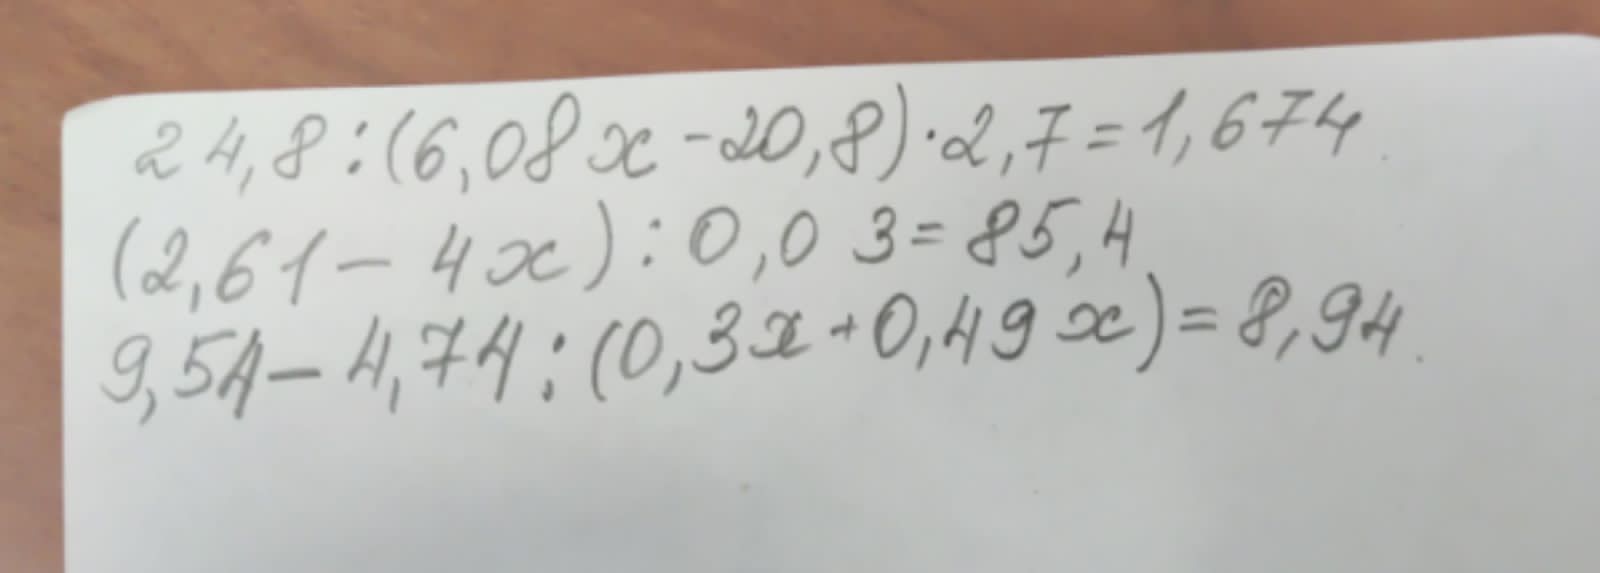 24,8:(6,08x-20,8)·2,7=1,674
(2,61-4x):0,03=85,4
9,54-4,74:(0,3x+0,49x)=8,94.